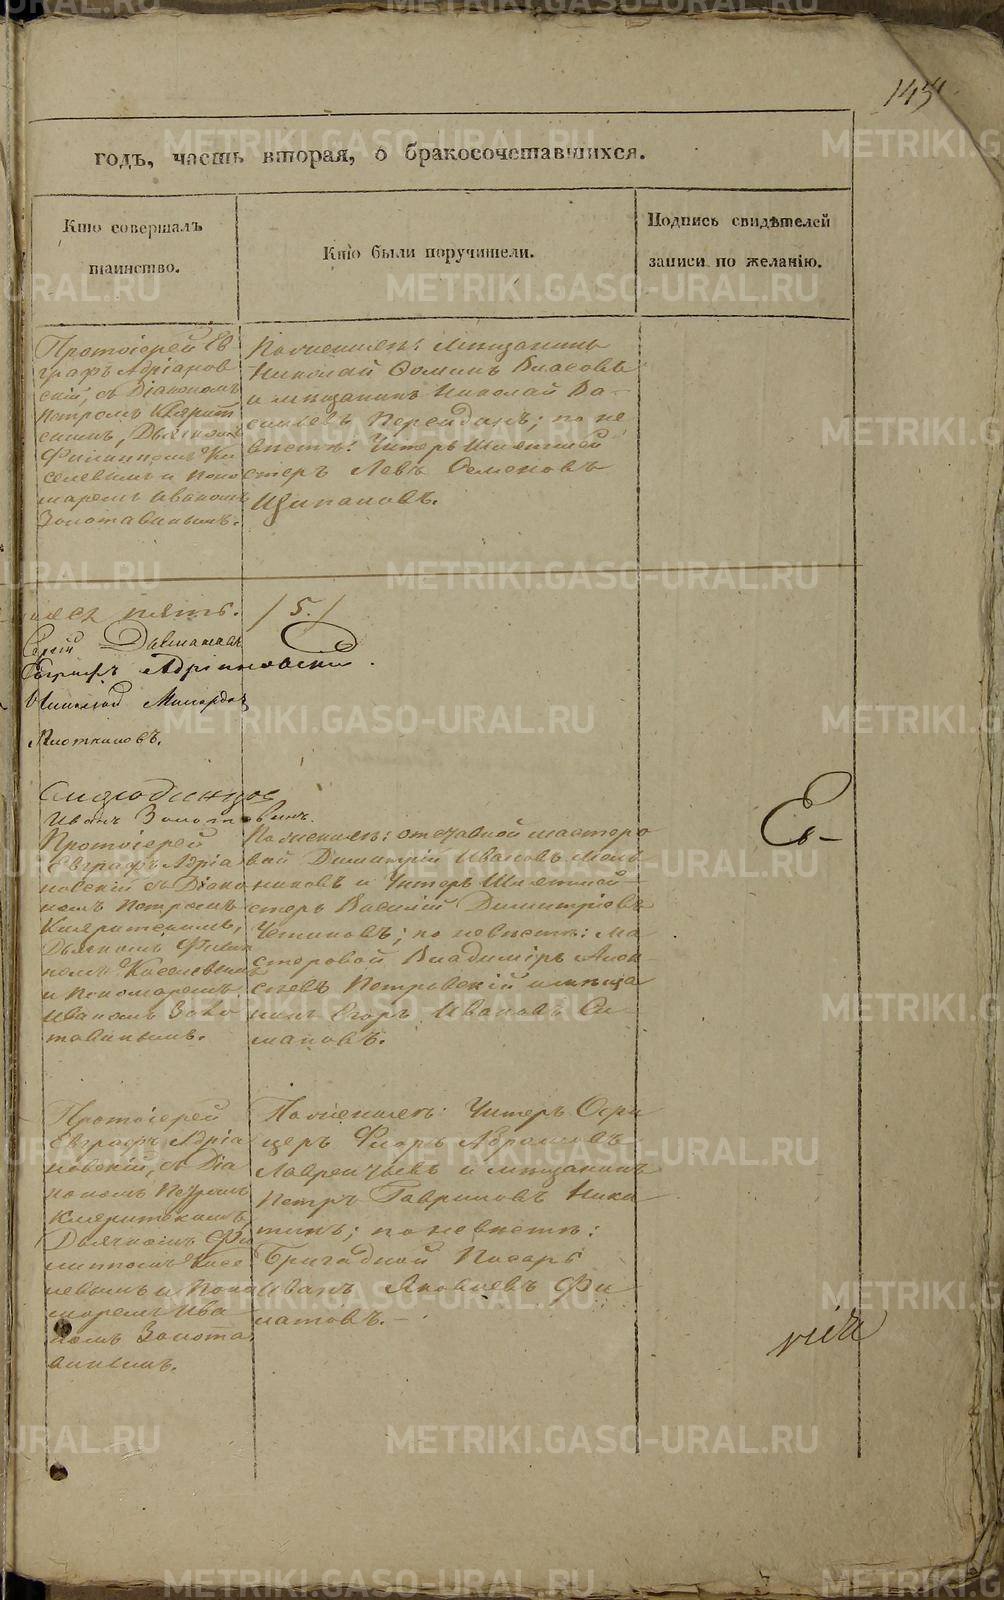 145
годъ, часть вторая, о бракосочетавшихся.
Кто совершалъ
таинство.
Кто были поручители.
Подпись свидѣтелей
записи по желанію.
Протоіерей Ев
графъ Адріанов
скій, съ Діакономъ
Петромъ
Дьячкомъ
Филиппомъ Ки
селевымъ и Поно
маремъ Иваномъ
Золотавинымъ.
По женихѣ: мѣщанинъ
Николай Ѳоминъ Власовъ
и мѣщанинъ Николай Ва
сильевъ по не
вѣстѣ: Унтеръ Шихтмей
стеръ Левъ Семеновъ
Ципановъ.
пять. /5./
Сергій
Евграфъ Адріановскій.
Николай
Плотниковъ.
Иванъ Золотавинъ.
Протоіерей
Евграфъ Адріа
новскій съ Діако
номъ Петромъ
Дьячкомъ Филип
помъ Киселевымъ
и Пономаремъ
Иваномъ Золо
тавинымъ.
По женихѣ: отставной мастеро
вой Димитрій Ивановъ Мель
никовъ и Унтеръ Шихтмей
стеръ Василій Димитріевъ
по невѣстѣ: ма
стеровой Владиміръ Алек
сѣевъ Петровскій и мѣща
нинъ Егоръ Ивановъ Си
мановъ.
Ев-
Протоіерей
Евграфъ Адріа
новскій, съ Діа
кономъ Петромъ
Дьячкомъ Фи
липпомъ Кисе
левымъ и Поно
маремъ Ива
номъ Золота
винымъ.
По женихѣ: Унтеръ Офи
церъ Ѳедоръ Абрамовъ
Лаврентьевъ и мѣщанинъ
Петръ Гавриловъ Ники
тинъ; по невѣстѣ:
Бригадной Писарь
Иванъ Яковлевъ Фи
латовъ.-
METRIKI.GASO-URAL.RU